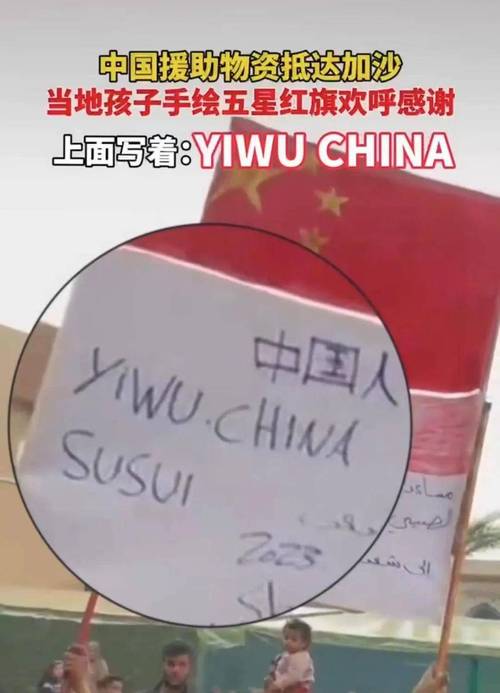 中国援助物资抵达加沙
当地孩子手绘五星红旗欢呼感谢
上面写着：YIWU CHINA
中国人
YIWU.CHINA
SUSUI
2023